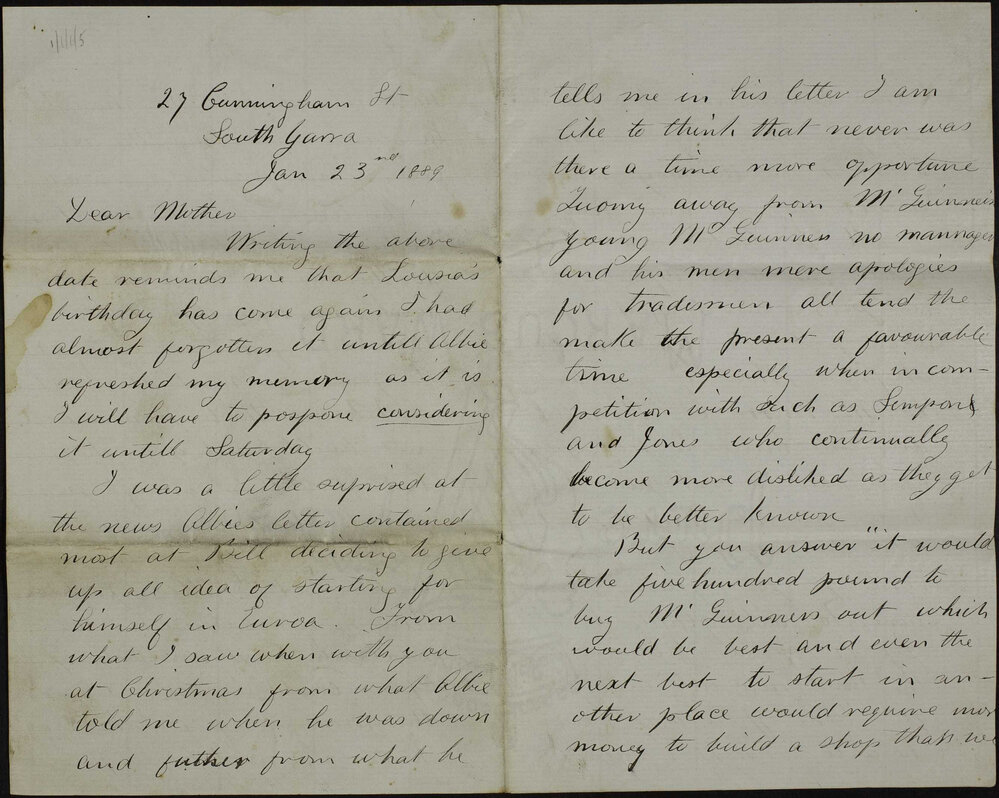 1/1/1/5
27 Cunningham St
South Yarra
Jan 23nd 1889
Dear Mother
Writing the above
date reminds me that Lousia's
birthday has come again I had
almost forgotten it untill Albie
refreshed my memory as it is
I will have to pospone considering
it untill Saturday
I was a little suprised at
the news Albies letter contained
most at Bill deciding to give
up all idea of starting for
himself in Euroa. From
what I saw when with you
at Christmas from what Albie
told me when he was down
and futher from what he
tells me in his letter I am
like to think that never was
there a time more opportune
away from McGuinness
young McGuinness no mannager
and his men mere apologies
for tradesmen all tend the
make the present a favourable
time especially when in com-
petition with such as Simpson
and Jones who continually
become more disliked as they get
to be better known
But you answer "it would
take five hundred pound to
buy McGuinness out which
would be best and even the
next best to start in an-
other place would require more
money to build a shop than we